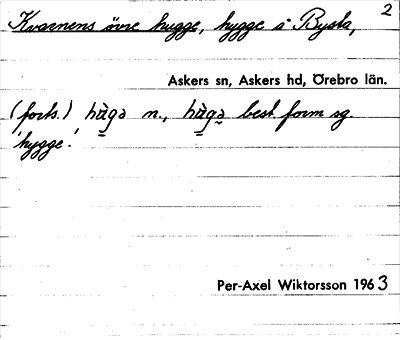 2
Kvarnens övre hugge, hygge i Bysta,
Askers sn, Askers hd, Örebro län.
(forts.) hùgə n., hùgə best. form sg.
'hygge'.
Per-Axel Wiktorsson 1963